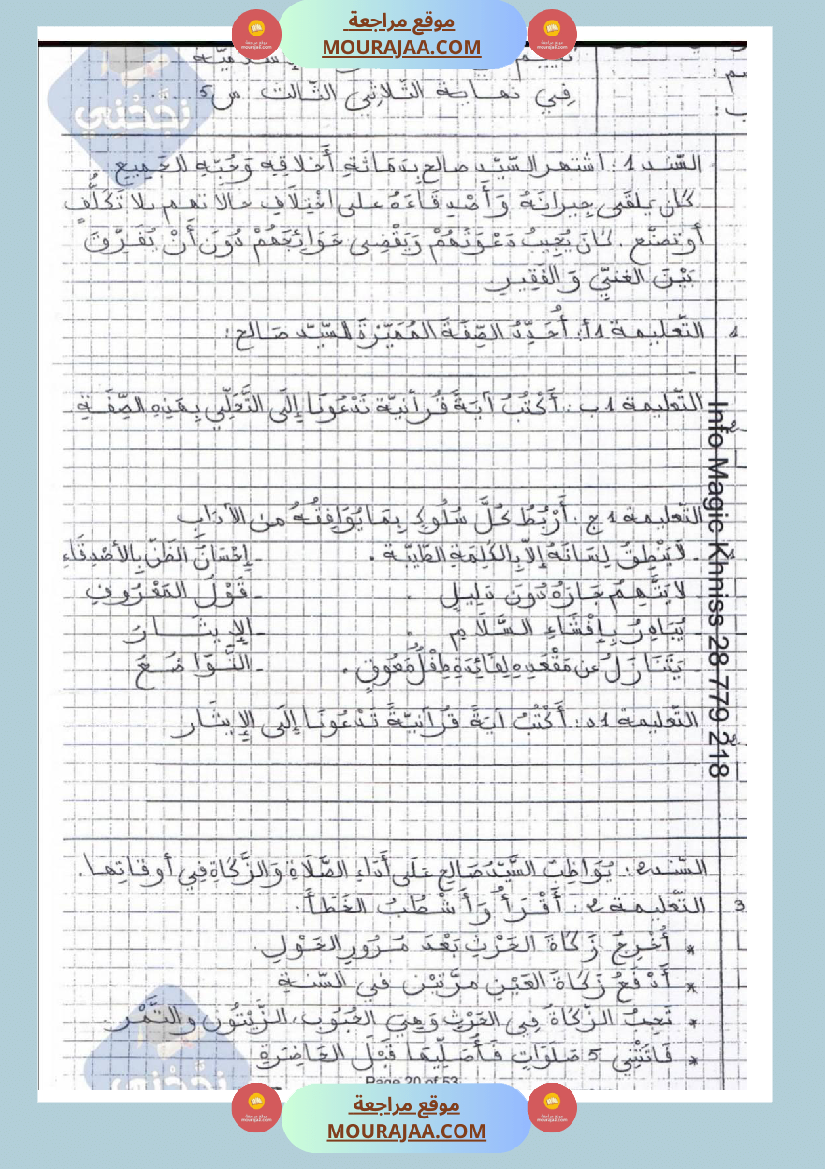 موقع مراجعة
MOURAJAA.COM
في نهاية الثّلاثي الثّالث س5
نجّحني
السّند 1: اشتهر السّيّد صالح بِدَمَاثَةِ أَخلاقِهِ وَحُبِّه الجميع
كان يلقى جيرانَهُ وَأَصْدِقَاءَهُ على اخْتِلَافِ حالاتهم بلا تَكَلُّفٍ
أو تصنّع. كانَ يُجِيبُ دَعْوَتَهُمْ وَيَقْضِي حَوَائِجَهُمْ دُونَ أَنْ يُفَرِّقَ
بَيْنَ الغنيِّ وَالفَقِيرِ
التّعليمة 1أ: أُحَدِّدُ الصِّفَةَ المُمَيّزَةَ للسّيّد صَالح:
التّعليمة 1ب: أَكْتُبُ آيَةً قُرآنيّة تَدْعُونَا إِلَى التَّحَلِّي بِهَذِهِ الصِّفَةِ
التّعليمة 1ج: أَرْبُطُ كُلَّ سُلُوكٍ بِمَا يُوَافِقُهُ من الآدَابِ
- لَا يَنْطِقُ لِسَانُهُ إلاّ بِالكَلِمَةِ الطَيِّبَة . - إِحْسَانُ الظَنِّ بِالأَصْدِقَاءِ
- لَا يَتَّهِمُ جَارَهُ دُونَ دَلِيلٍ . - قَوْلُ المَعْرُوفِ
- يُبَادِرُ بِإِفْشَاءِ السَّلَامِ . - الإِيثَارُ
- يَتَنَازَلُ عن مَقْعَدِهِ لِفَائِدَةِ طِفْلٍ مُعَوقٍ . - التَّوَاضُعُ
التّعليمة 1د: أَكْتُبُ آيَةً قُرْآنِيَّةً تَدْعُونَا إِلَى الإِيثَار
السّند 2: يُوَاظِبُ السَّيِّدُ صَالِح عَلَى أَدَاءِ الصَّلَاةِ وَالزَّكَاةِ في أوقاتِها.
التّعليمة 2: أَقْرَأُ وَأَشْطُبُ الخَطَأَ:
* أُخْرِجُ زَكَاةَ الحَرْثِ بَعْدَ مُرُورِ الحَوْلِ.
* أَدْفَعُ زَكَاةَ العَيْنِ مرَّتَيْنِ في السّنةِ
* تَجِبُ الزَكَاةُ فِي الحَرْثِ وَهِيَ الحُبُوب، الزَّيْتُون والتَّمْر.
* فَاتَتْنِي 5 صَلَوَاتٍ فَأُصَلِّيهَا قَبْلَ الحَاضِرَةِ
Info Magic Khniss 28 779 218
Page 20 of 53
نجّحني
موقع مراجعة
MOURAJAA.COM